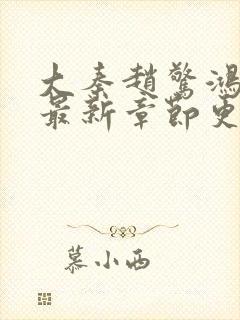 大秦趙驚鴻
最新章節更
慕小西